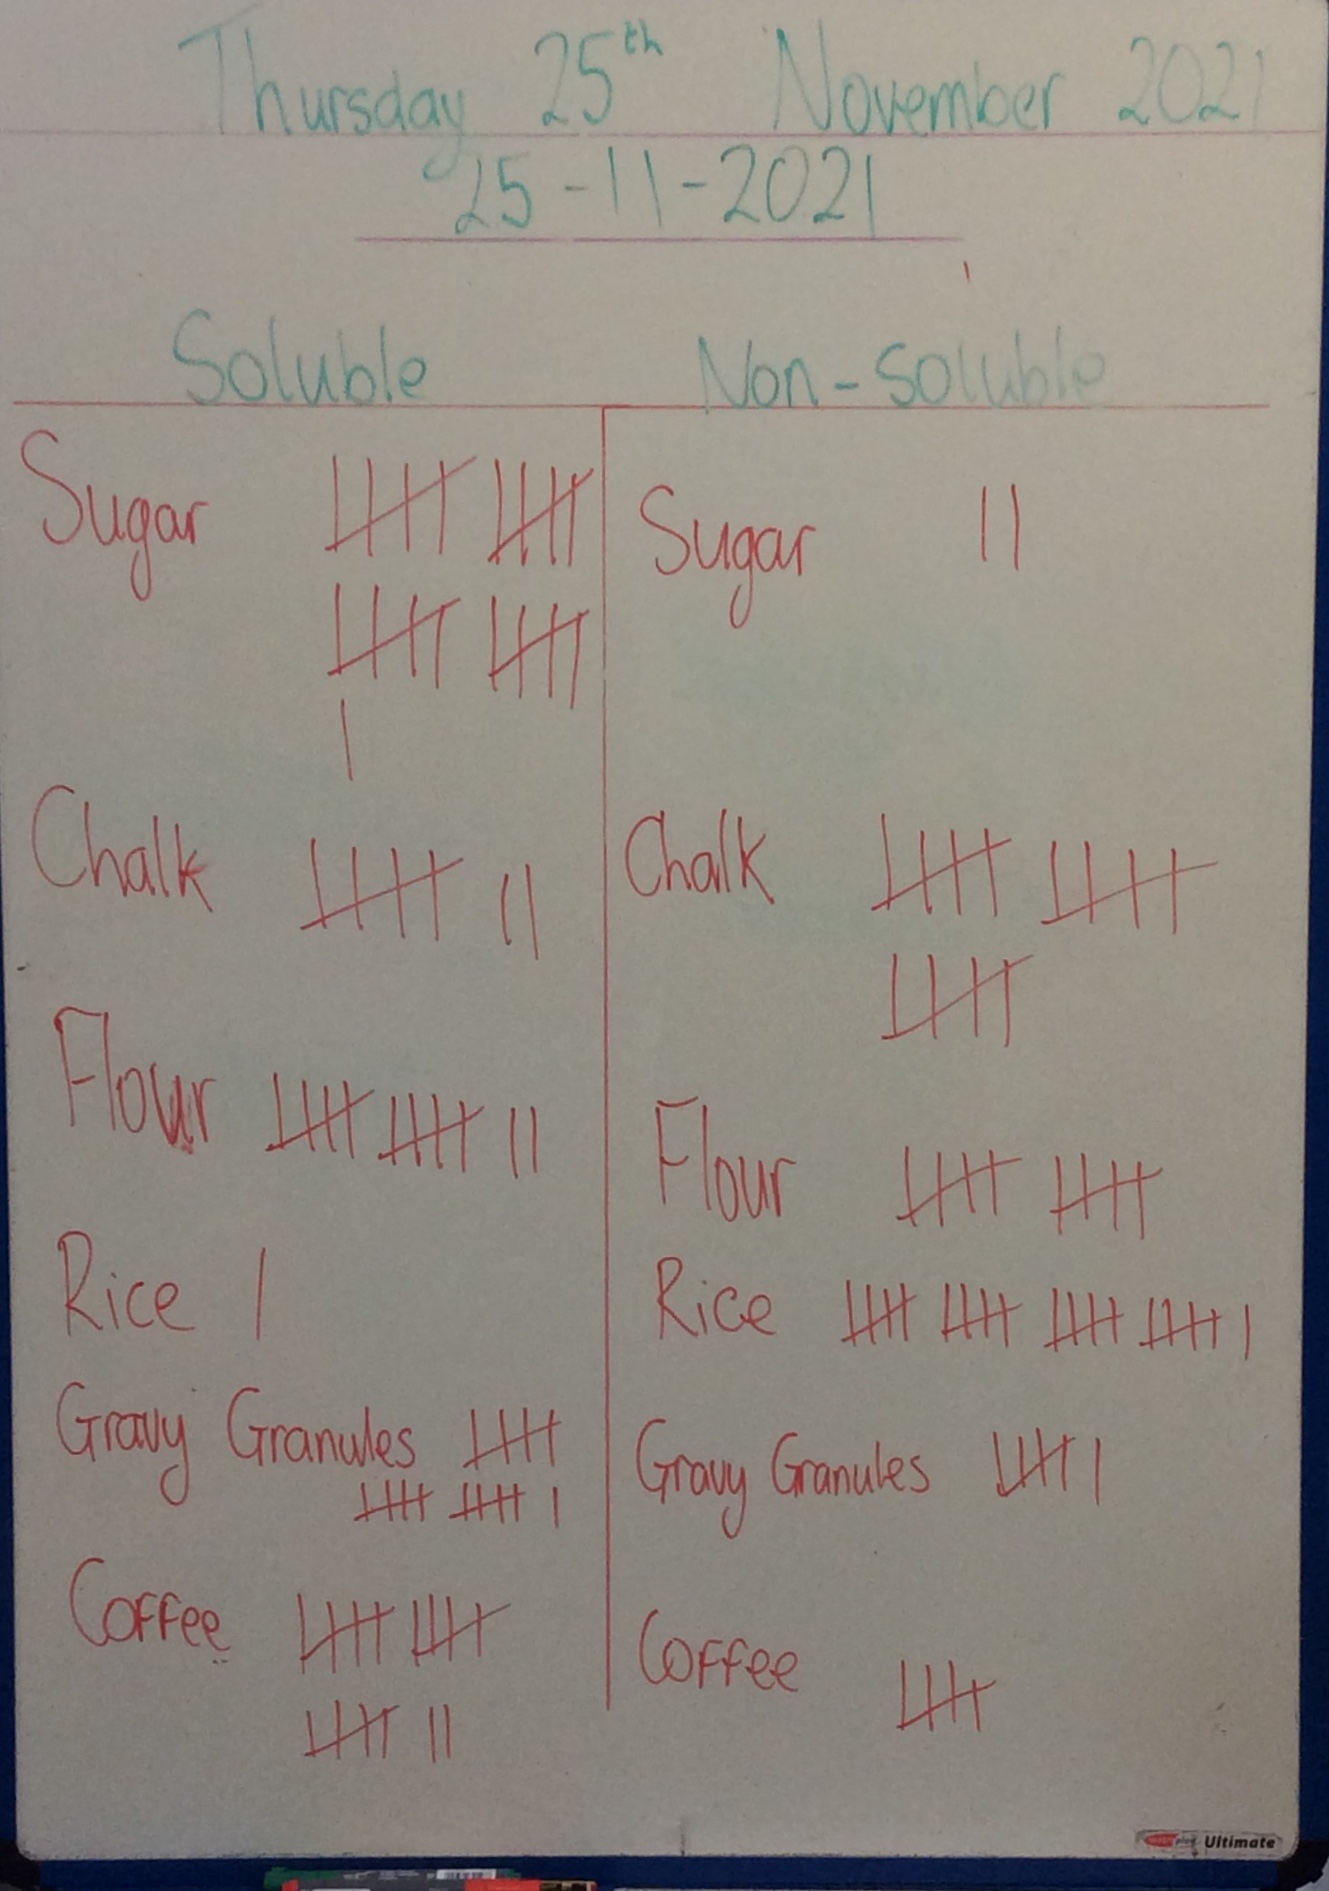 Thursday 25th November 2021
25-11-2021
Soluble
Non-soluble
Sugar
Sugar
Chalk
Chalk
Flour
Flour
Rice
Rice
Gravy Granules
Gravy Granules
Coffee
Coffee
Ultimate